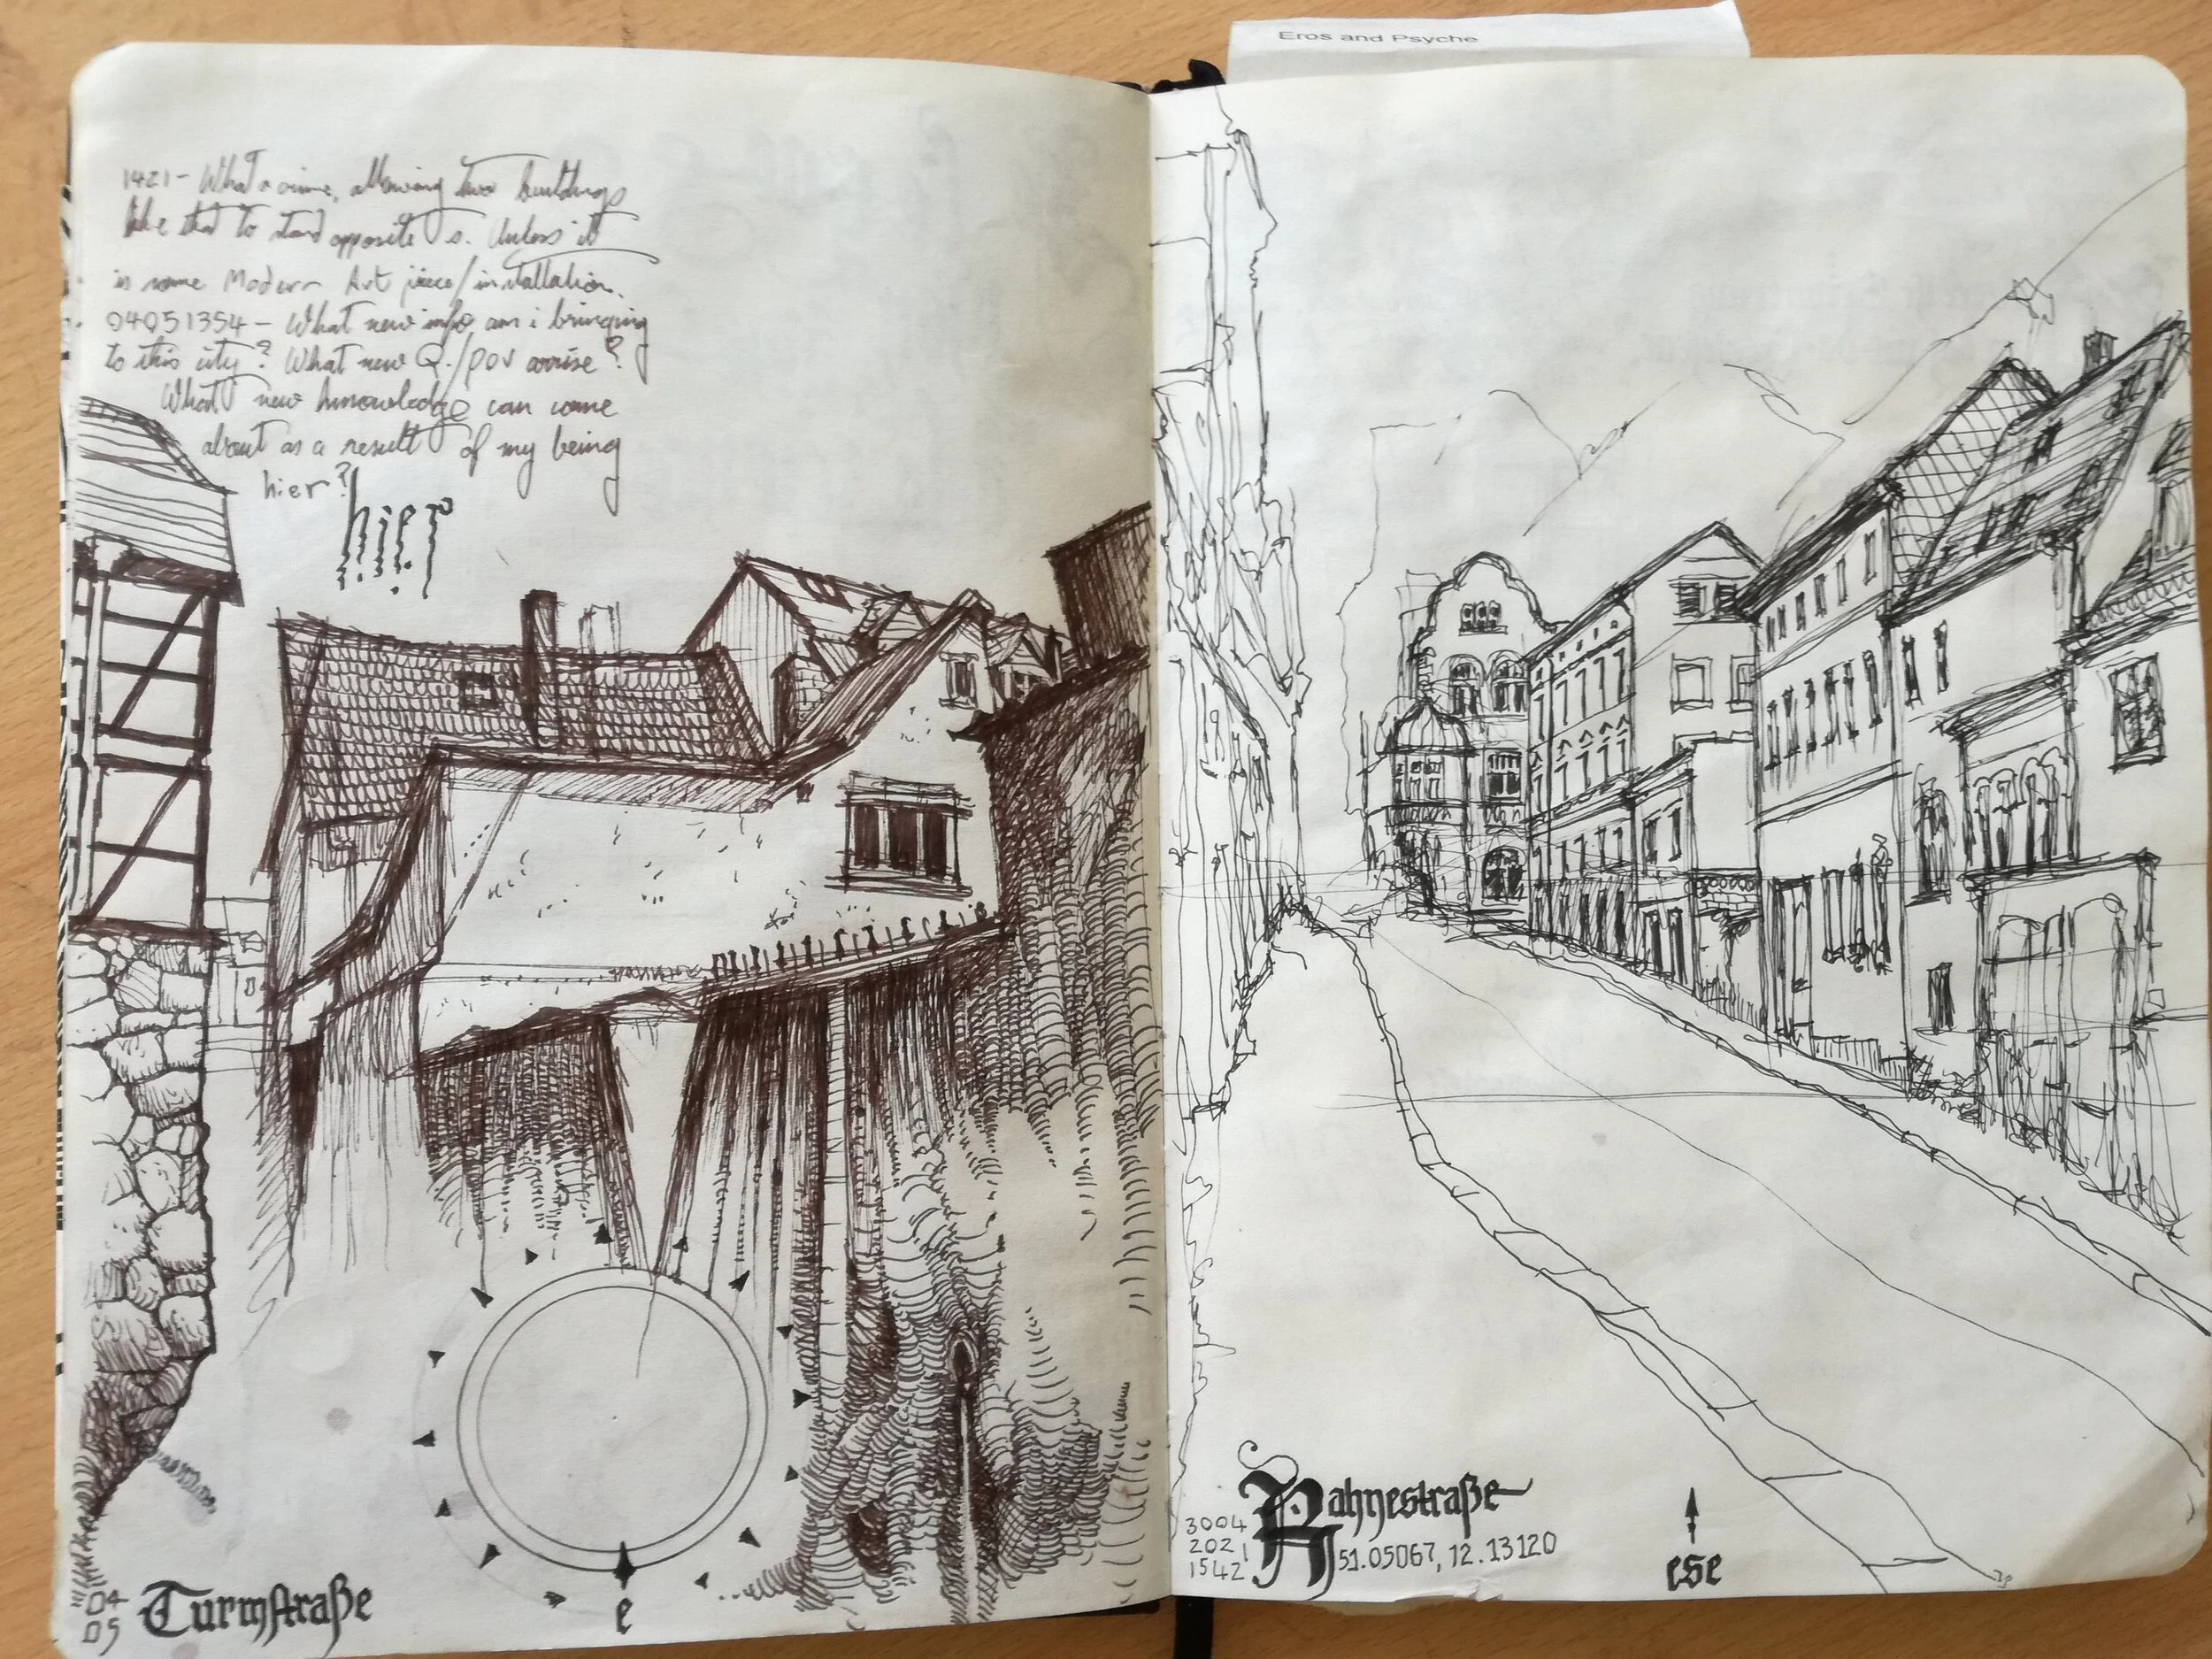 Eros and Psyche
1421 - What a crime, allowing two buildings
like that to stand opposite s. Unless it
is some Modern Art piece/installation.
04051354 - What new info am i bringing
to this city? What new Q./POV arrise?
What new knowledge can come
about as a result of my being
hier?
hier
04
05
Turmstraße
e
3004
2021
1542
Rahnestraße
51.05067, 12.13120
ese